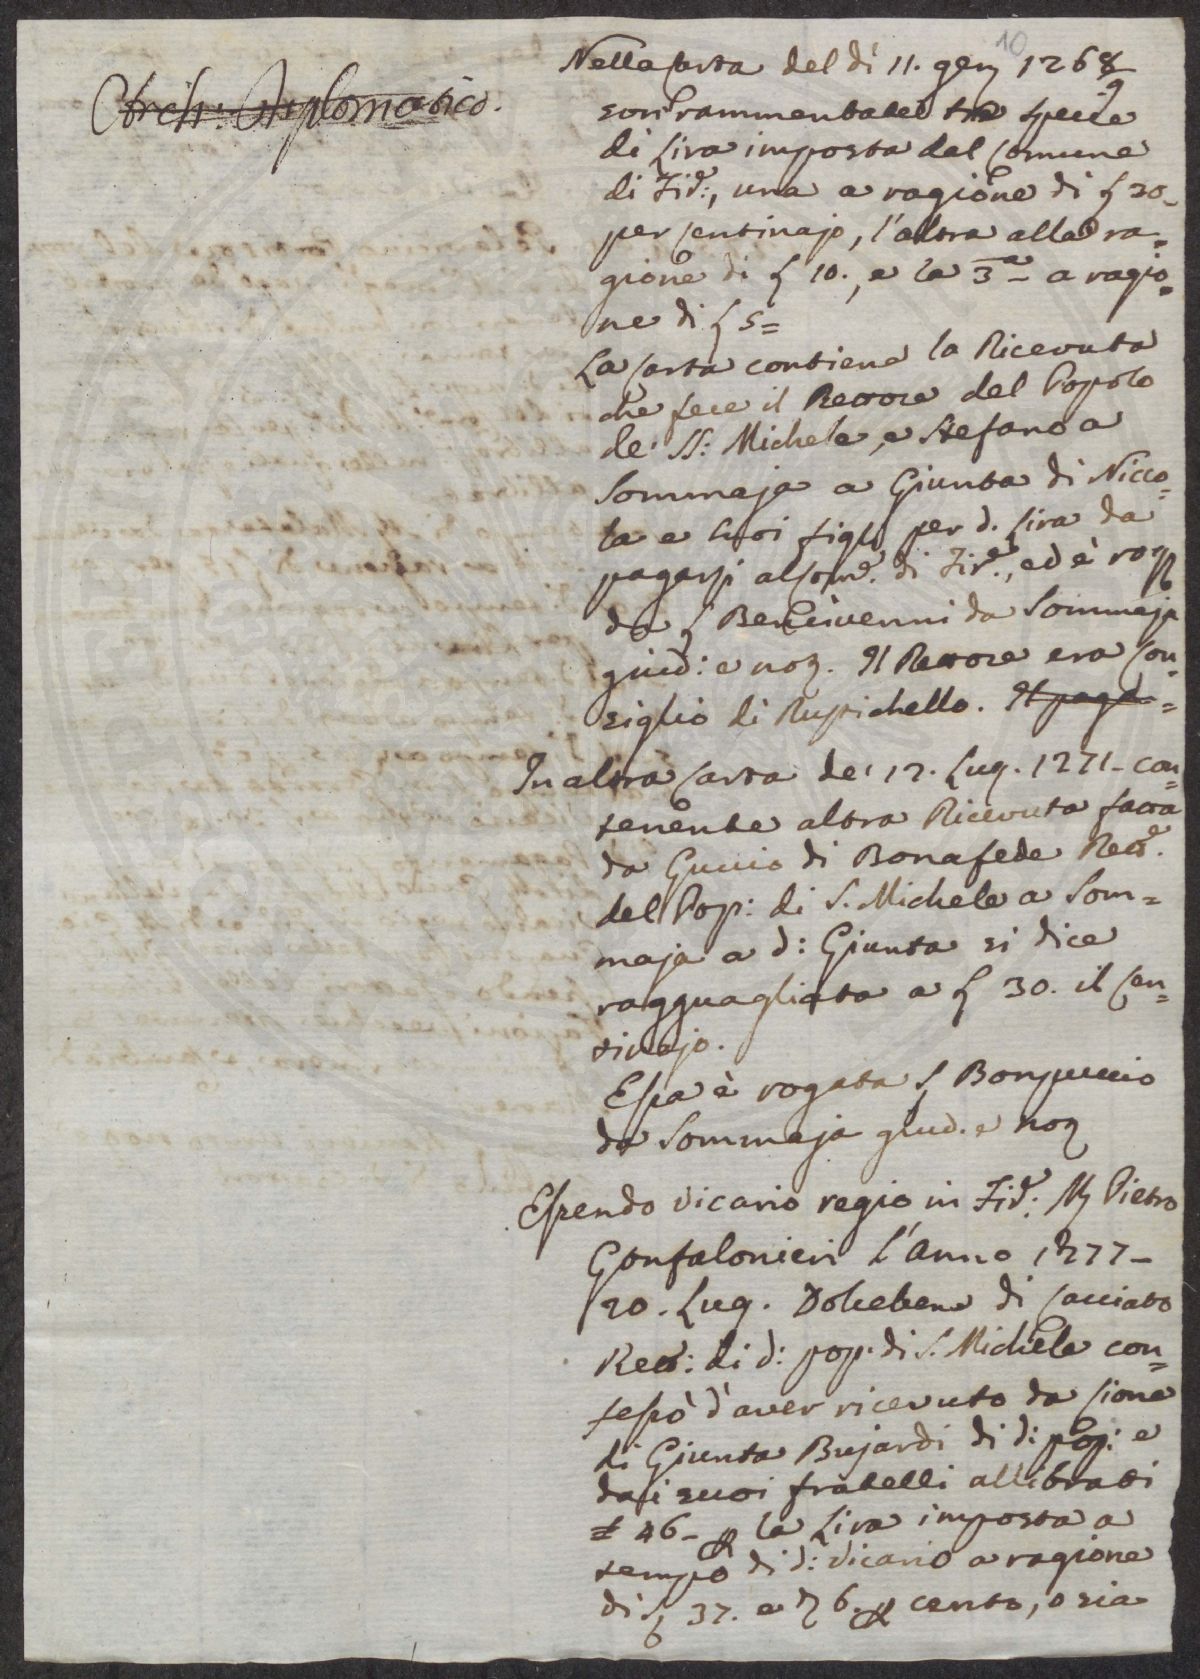 10
Arch: Diplomatico.
Nella Carta del dì 11. gen 1268
9
son rammentate tre specie
di Lira imposta dal Comune
di Fir:e, una a ragione di ʃ 20-
per Centinajo, l'altra alla ra=
gione di ʃ 10., e la 3a- a ragio=
ne di ʃ 5=
La Carta contiene la Ricevuta
che fece il Rettore del Popolo
de' SS: Michele, e Stefano a
Sommaja a Giunta di Nicco=
la e suoi figli per d. Lira da
pagarsi al Com.e di Fir.e, ed è rog
da ʃ Bencivenni da Sommaja
giud: e not. Il Rettore era Con=
siglio di Rupichello. Il paga=
In altra Carta de' 12. Lug. 1271- con=
tenente altra Ricevuta fatta
da Guccio di Bonafede Rett.e
del Pop: di S. Michele a Som=
maja a d: Giunta si dice
ragguagliata a ʃ 30. il Cen=
tinajo.
Essa è rogata ʃ Bonpuccio
da Sommaja giud. e not
Essendo Vicario regio in Fir.e: M Pietro
Gonfalonieri l'Anno 1277-
20. Lug. Dolcebene di Cacciato
Rett: di d: pop. di S. Michele con=
fessò d'aver ricevuto da Cione
di Giunta Bujardi di d: pop: e
dai suoi fratelli allibrati
46- la Lira imposta a
tempo di d: Vicario a ragione
di ʃ 37. e 6. cento, o sia